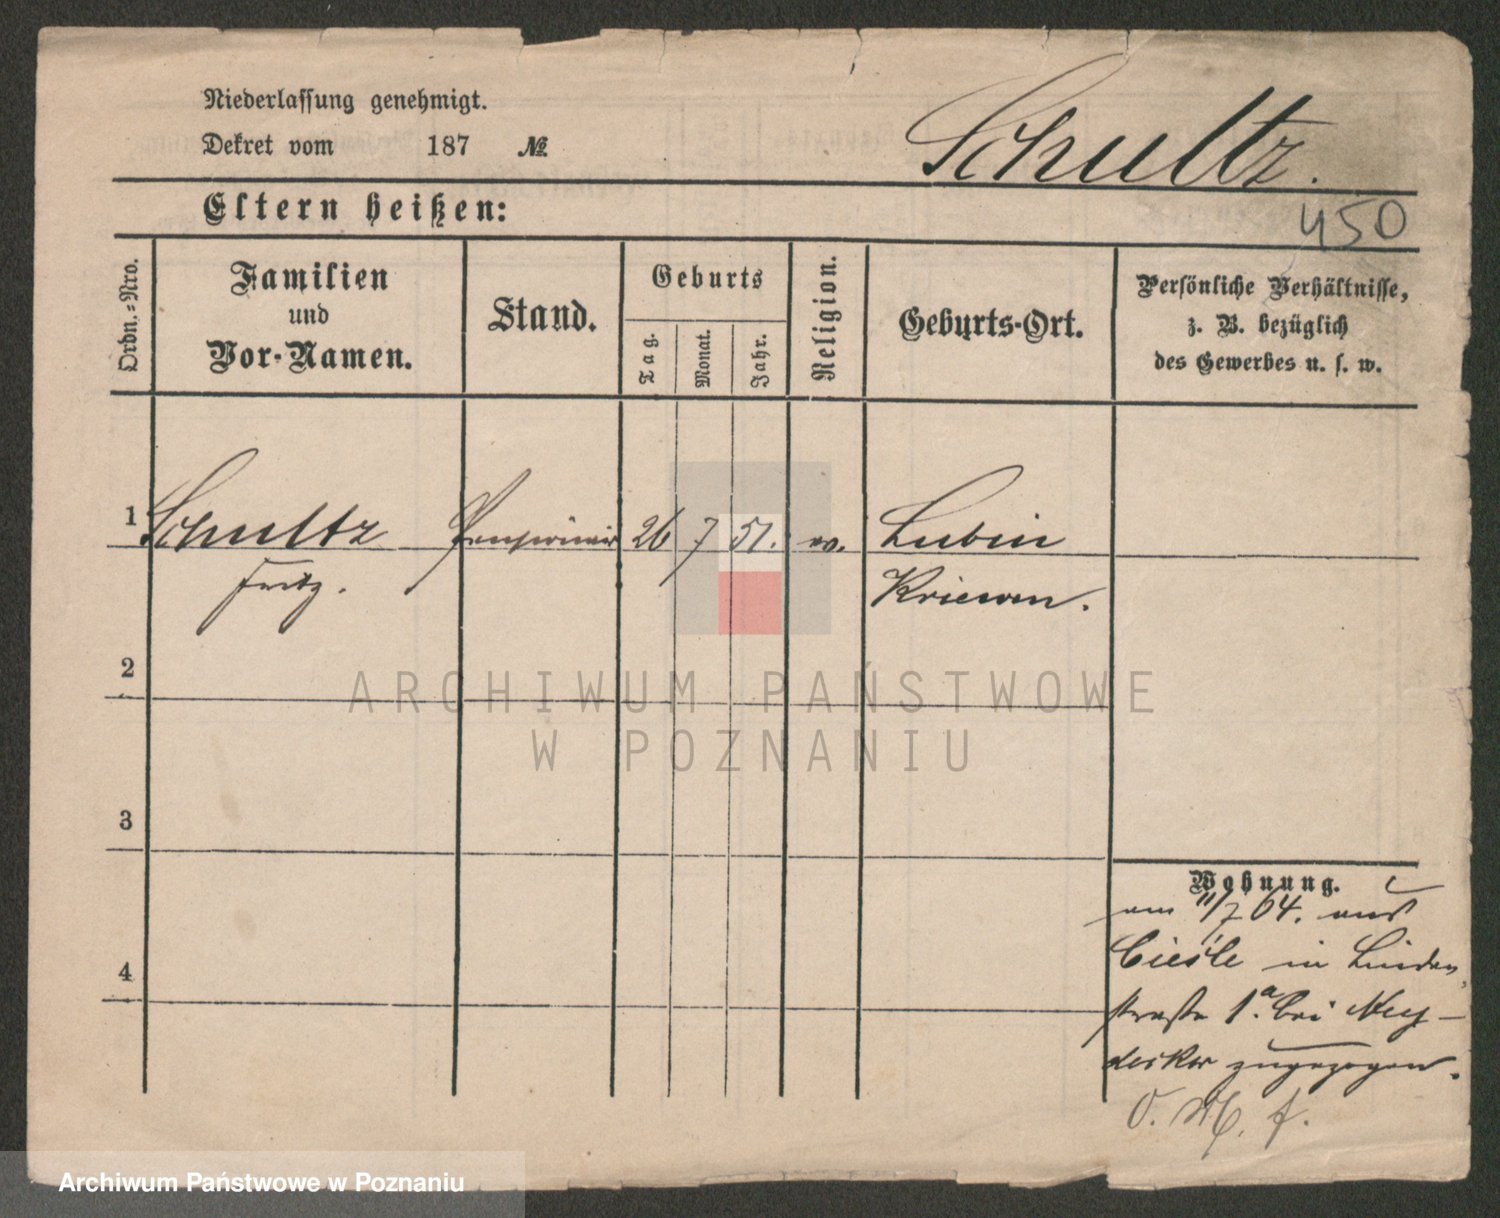 Niederlassung genehmigt.
Dekret vom 187 №
Schultz.
Eltern heißen:
450
Ordn.-Nro.
Familien
und
Vor-Namen.
Stand.
Geburts
Tag.
Monat.
Jahr.
Religion.
Geburts-Ort.
Persönliche Verhältnisse,
z. B. bezüglich
des Gewerbes u. s. w.
1 Schultz 26 7 51. ev. Lubin
Fritz. Kriewen.
2
3
4
Wohnung.
am 11/7 04. aus
Cieśle in Linden
straße 1.a bei Ney-
decker zugezogen.
ARCHIWUM PAŃSTWOWE
W POZNANIU
Archiwum Państwowe w Poznaniu